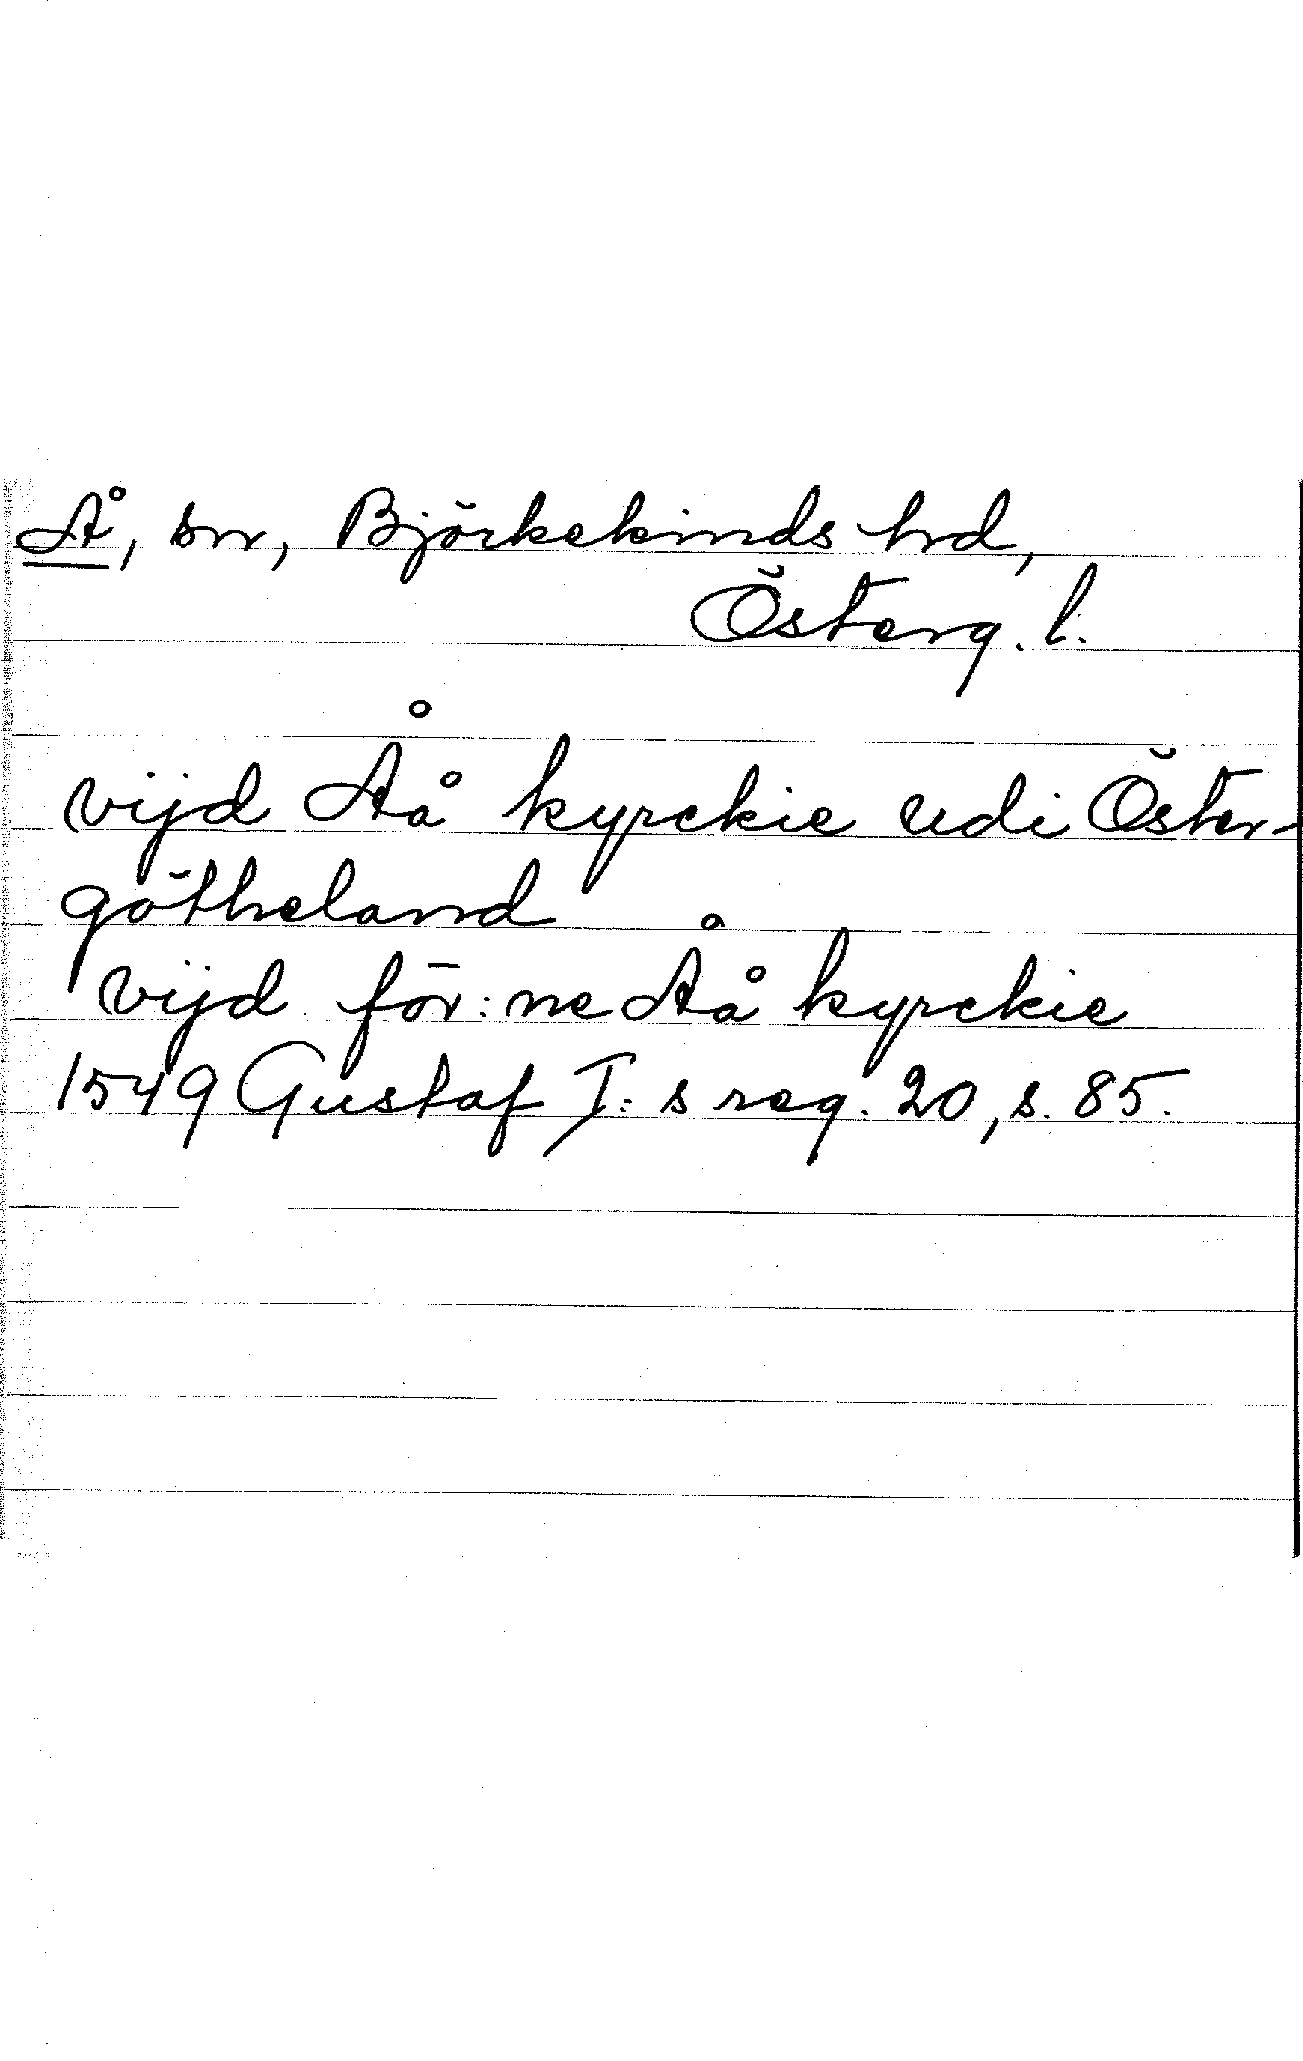 Å, sn, Björkekinds hrd,
Österg. l.
vijd Åå kyrckie udi Öster-
götheland
vijd för:ne Åå kyrckie
1549 Gustaf I:s reg. 20, s. 85.